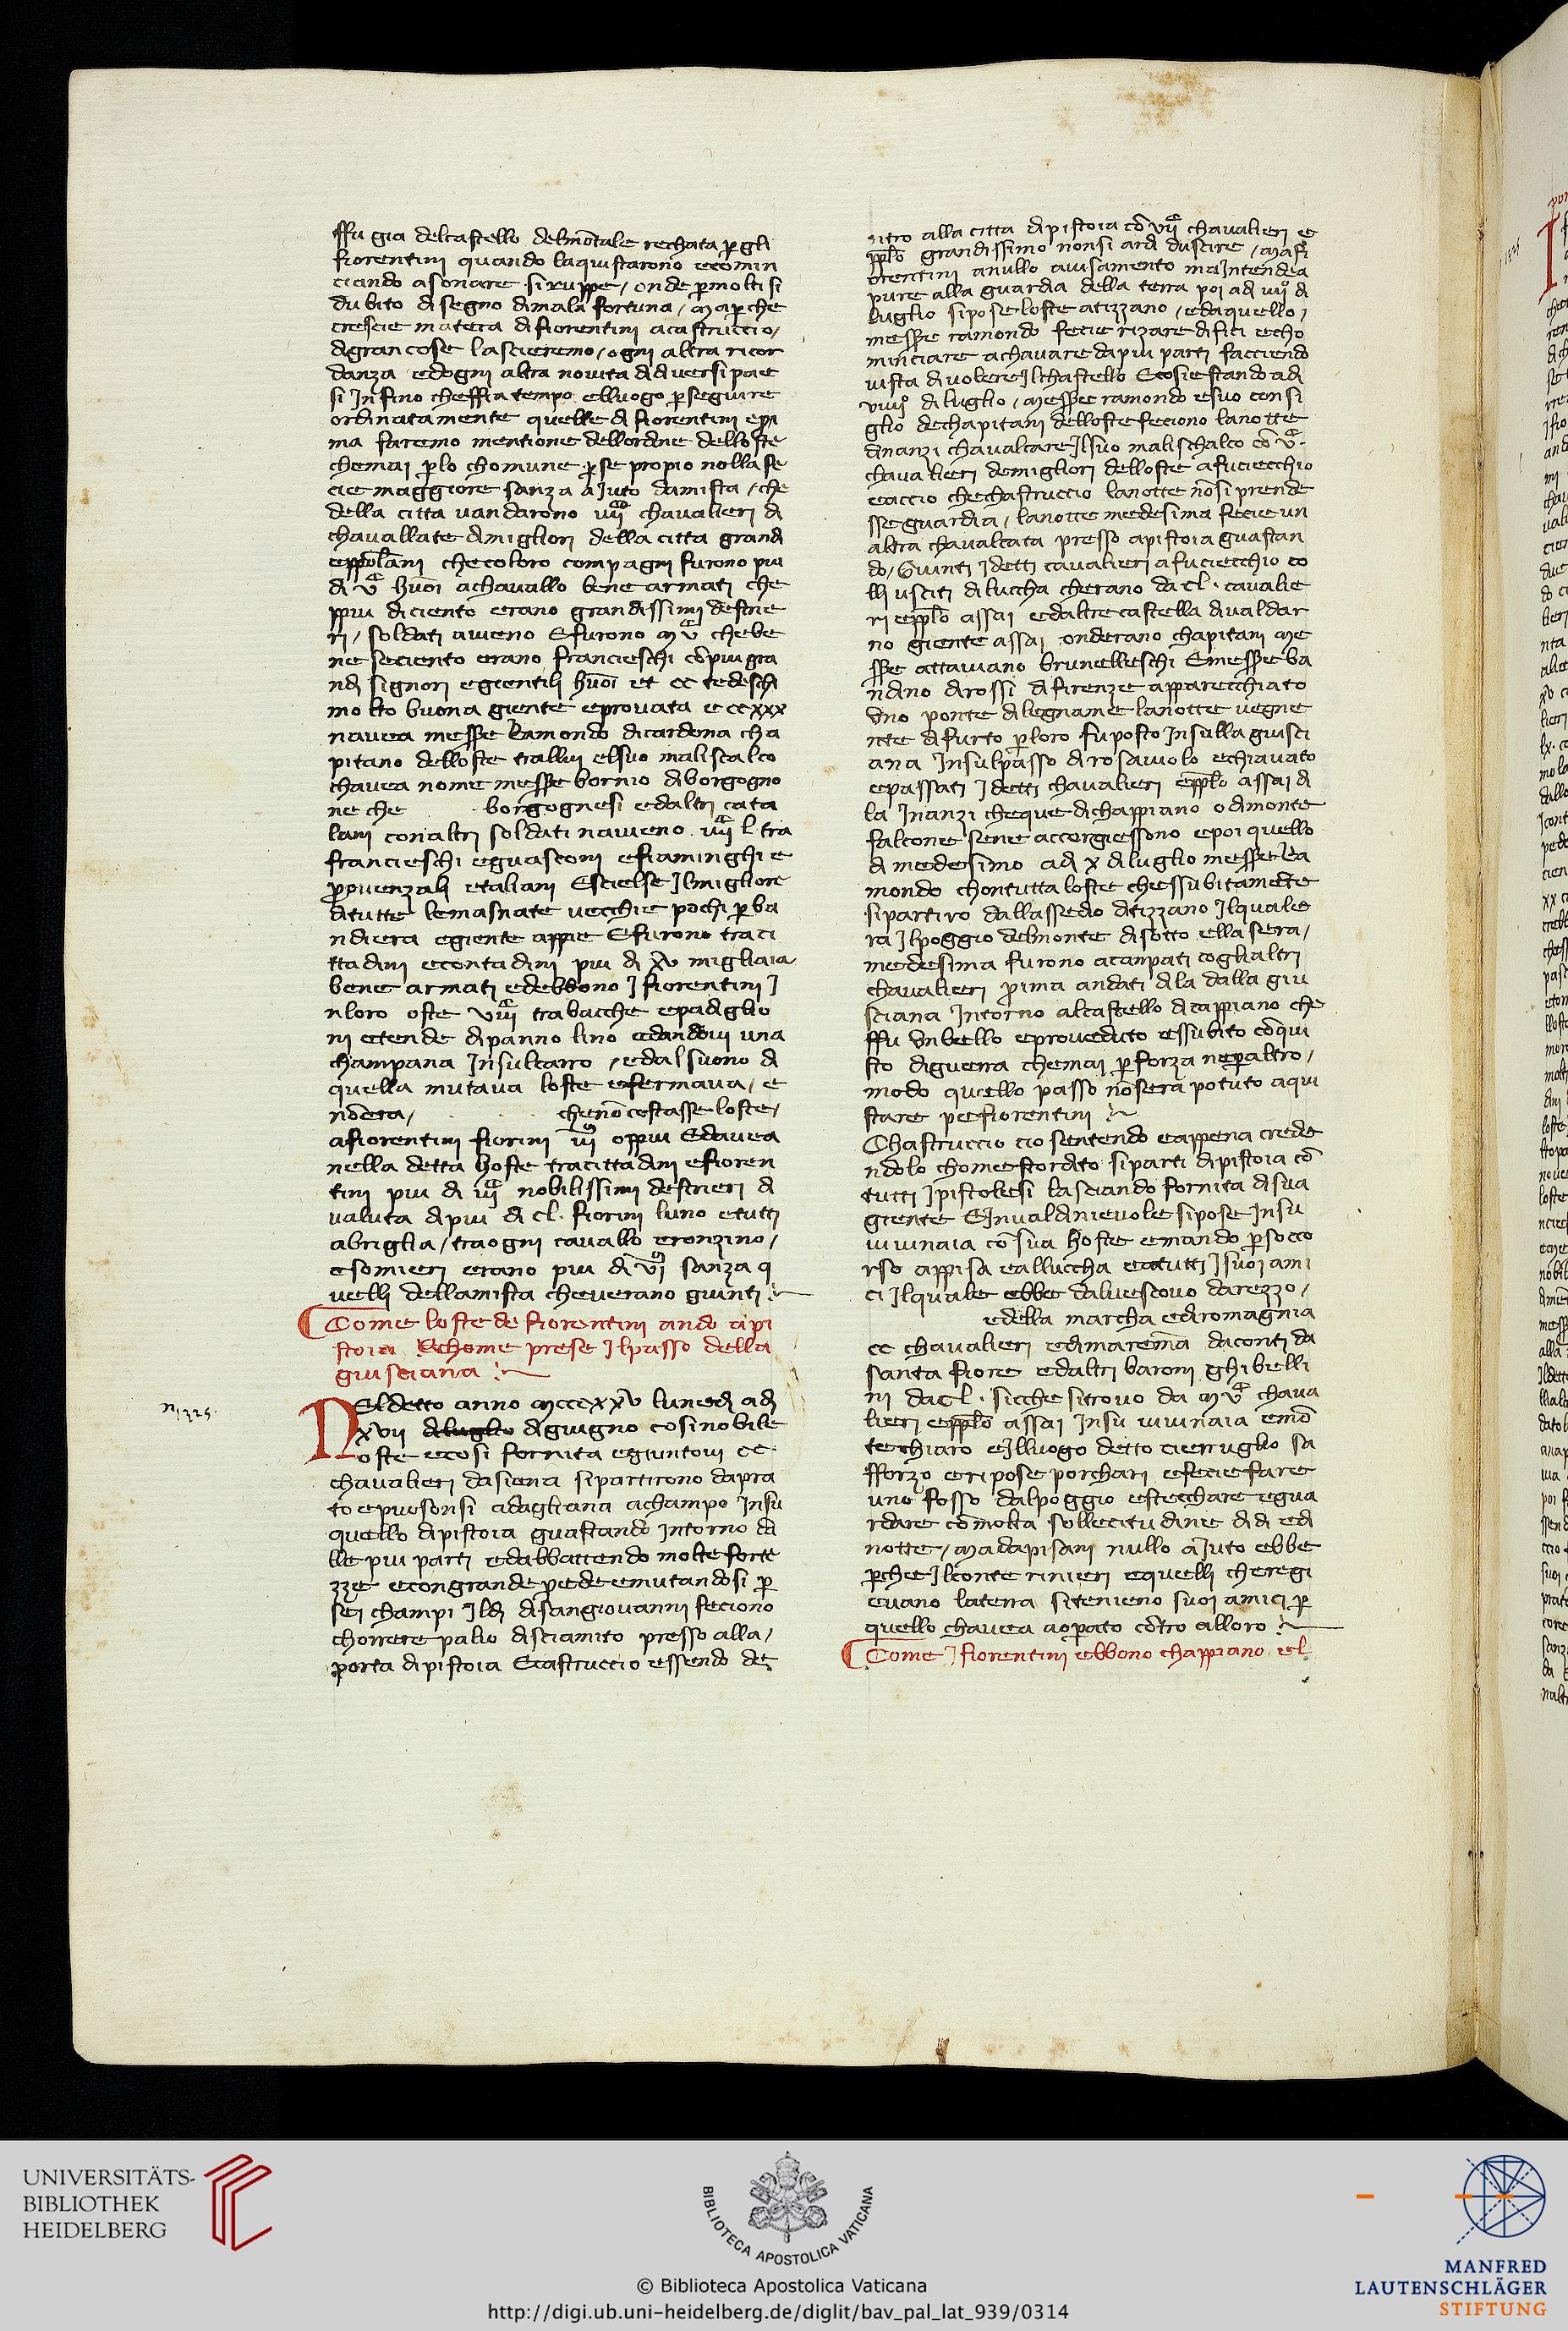 ffu gia delcastello delmōtale rechata p̱gli
fiorentini quando laquistarono ecomin
ciando asonare siruppe / onde p̱molti si
dubito disegno dimala fortuna / Map̱che
crescie matera difiorentini acastruccio /
digrancose lascieremo / ogni altra ricor
danza edogni altra novita didiversi pae
si Infino cheffia tempo elluogo p̱seguire
ordinatamente quelle di fiorentini epi
ma faremo mentione dellordine delloste
chemai p̱lo chomune p̱se propio nolla fe
cie maggiore sanza aiuto damista / che
della citta vandarono chavalieri di
chavallate dimigliori della citta grandi
eppolani checoloro compagni furono piu
di v̄c huoi achavallo bene armati che
ppiu diciento erano grandissimi destrie
ri / soldati aveno Efurono Mv̄c chebe
ne seciento erano francieschi cōpiugra
ndi signori egientili huōi et cc tedeschi
molto buona giente eprovata e ccxxx
navea messe Ramondo dicardona cha
pitano delloste trallui elsuo maliscalco
chavea nome messe bornio diborgogno
ne che borgognesi edaltri cata
lani conaltri soldati naveno l tra
francieschi eguasconi efiaminghi e
provenzali etaliani Escielse Ilmigliore
ditutte lemasnate vecchie pochi p̱ba
ndiera egiente appie Efurono traci
ttadini econtadini piu di xv migliaia
bene armati edebbono I fiorentini I
nloro oste trabacche epadiglio
ni etende dipanno lino edandovi una
champana Insulcarro / edalsuono di
quella mutava loste efermava / e
nōdera / chenō costasse loste /
afiorentini fiorini oppiu Edavea
nella detta hoste tracittadini efioren
tini piu di nobilissimi destrieri di
valuta dipiu di cl. fiorini luno etutti
abriglia / traogni cavallo eronzino /
esomieri erano piu di sanza q
uelli dellamista cheverano giunti
Come loste de fiorentini ando api
stoia Echome prese Ilpasso della
giusciana
Neldetto anno Mcccxxv lunedi adi
xvii diluglio digiugno cosinobile
oste ecosi fornita egiuntovi cc.
chavalieri dasiena sipartirono dapra
to epuosonsi adagliana achampo Insu
quello dipistoia guastando Intorno da
lle piu parti edabbattendo molte forte
zze econgrande prede emutandosi p̱
sei champi Ildi disangiovanni feciono
chorrere palio disciamito presso alla /
porta dipistoia Ecastruccio essendo de
M1325.
ntro alla citta dipistoia cō vijc chavalieri e
pplo grandissimo nonsi ardi duscire / Mafi
orentini anullo avisamento maIntendea
pure alla guardia della terra poi adi iiij di
luglio sipose loste atizzano / edaquello /
messe ramondo fecie rizare difici echo
minciare achavare dapiu parti facciendo
vista divolere Ilchastello Ecosiestando adi
viiij diluglio / Messe ramondo esuo consi
glio dechapitani delloste feciono lanotte
dinanzi chavalcare Ilsuo malischalco cō v̄c
chavalieri demigliori delloste afuciecchio
eaccio chechastruccio lanotte nōsi prende
sse guardia / lanotte medesima fecie un
altra chavalcata presso apistoia guastan
do / Giunti I detti cavalieri afuciecchio co
lli usciti diluccha cherano da cl. cavalie
ri epplo assai edaltre castella divaldar
no giente assai onderano chapitani Me
sse attaviano brunelleschi Emesse ba
ndino dirossi di firenze apparecchiato
Uno ponte dilegname lanotte vegne
nte difurto p̱loro fuposto Insullagiusci
ana Insulpasso dirosaiuolo echiavato
epassati I detti chavalieri epplo assai di
la Inanzi cheque dichappiano odimonte
falcone sene accorgiessono epoi quello
di medesimo adi x diluglio messe Ra
mondo chontutta loste chessubitamēte
sipartiro dallassedio ditizzano Ilquale
ra Ilpoggio delmonte disotto ella sera /
medesima furono acanpati cogli altri
chavalieri prima andati dila dalla giu
sciana Intorno alcastello dicappiano che
ffu Unbello eproveduto essubito cōqui
sto diguerra chemai p̱forza nep̱altro /
modo quello passo nōsera potuto aqui
stare pefiorentini
Chastruccio cio sentendo eappena crede
ndolo chomestordito siparti dipistoia cō
tutti I pistolesi lasciando fornita disua
giente EInvaldinievole sipose Insu
vivinaia cō sua hoste emando p̱socco
rso appisa ealluccha eatutti Isuoi ami
ci Ilquale ebbe dalvescovo darezzo /
edella marcha ediromagnia
cc chavalieri edimarema daconti da
santa fiore edaltri baroni ghibelli
ni dacl. sicche sitrovo da Mv̄c chava
lieri epplo assai Insu vivinaia emō
techiaro eIlluogo detto cierruglio sa
fforzo eripose porchari efecie fare
uno fosso dalpoggio estecchare egua
rdare cō molta sollecitudine di di edi
notte / Madapisani nullo aiuto ebbe
p̱che Ilconte rinieri equelli cheregi
evano laterra sitenieno suoi amici p̱
quello chavea aop̱ato cōtro alloro
Come I fiorentini ebbono chappiano el
UNIVERSITÄTS-
BIBLIOTHEK
HEIDELBERG
BIBLIOTECA APOSTOLICA VATICANA
© Biblioteca Apostolica Vaticana
http://digi.ub.uni-heidelberg.de/diglit/bav_pal_lat_939/0314
MANFRED
LAUTENSCHLÄGER
STIFTUNG